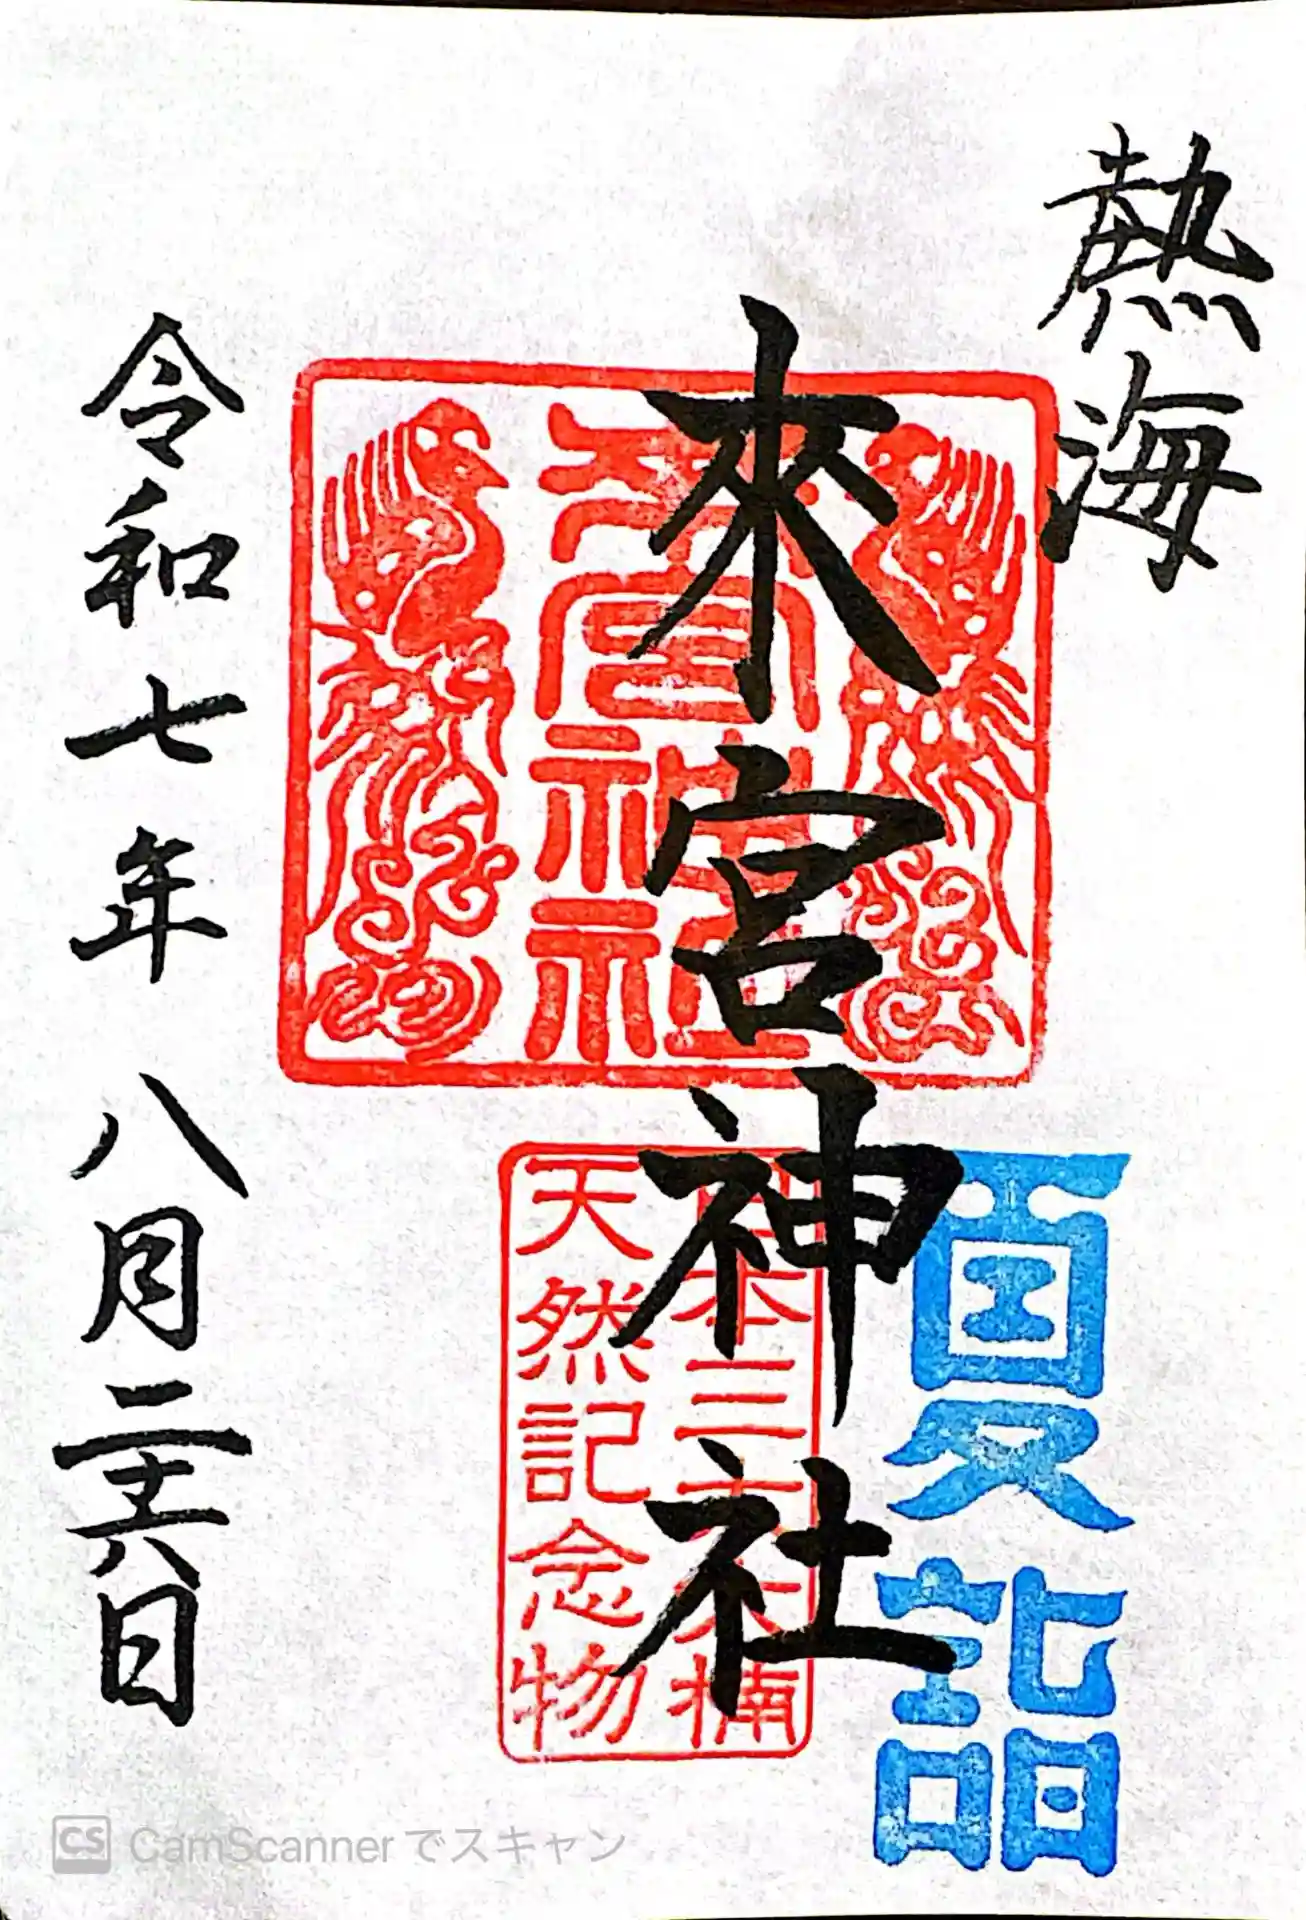 熱海
夏詣
來宮神社
來宮神社
日本三大大楠
天然記念物
令和七年八月二十六日
CS CamScannerでスキャン